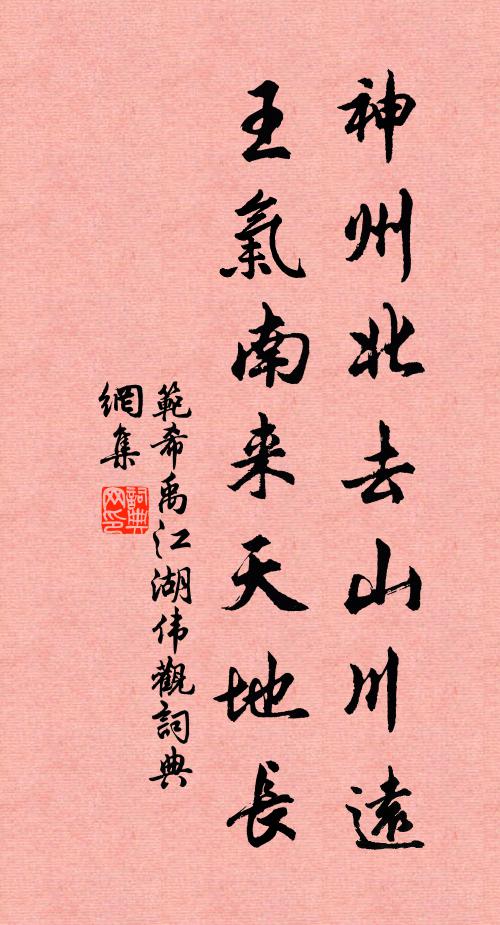 神州北去山川遠
王氣南来天地長
範希禹江湖伟觀詞典
網集
詞典网印